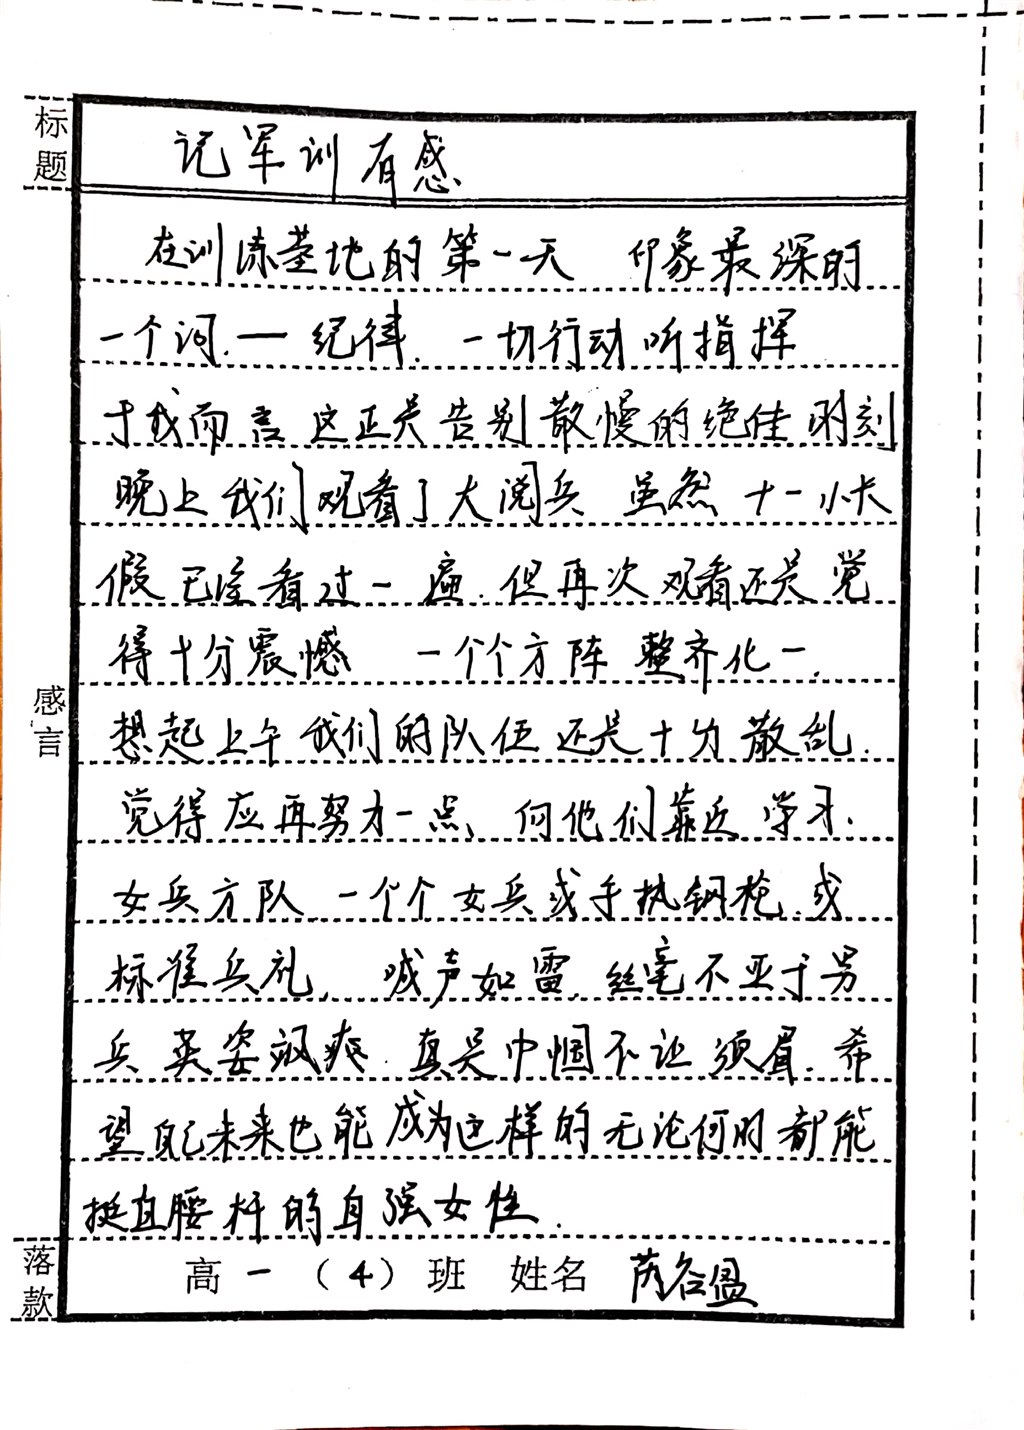 标题
记军训有感
在训练基地的第一天 印象最深的
一个词.一纪律.一切行动听指挥
于我而言 这正是告别散慢的绝佳时刻
晚上我们观看了大阅兵 虽然十一小长
假已经看过一遍.但再次观看还是觉
得十分震憾 一个个方阵整齐化一.
想起上午我们的队伍还是十分散乱.
觉得应再努力一点、向他们靠近学习.
感言
女兵方队.一个个女兵或手执钢枪.或
标准兵礼. 喊声如雷.丝毫不亚于男
兵 英姿飒爽.真是巾帼不让须眉.希
望自己未来也能成为这样的无论何时都能
挺直腰杆的自强女性.
落款
高一(4)班 姓名 芮谷盈